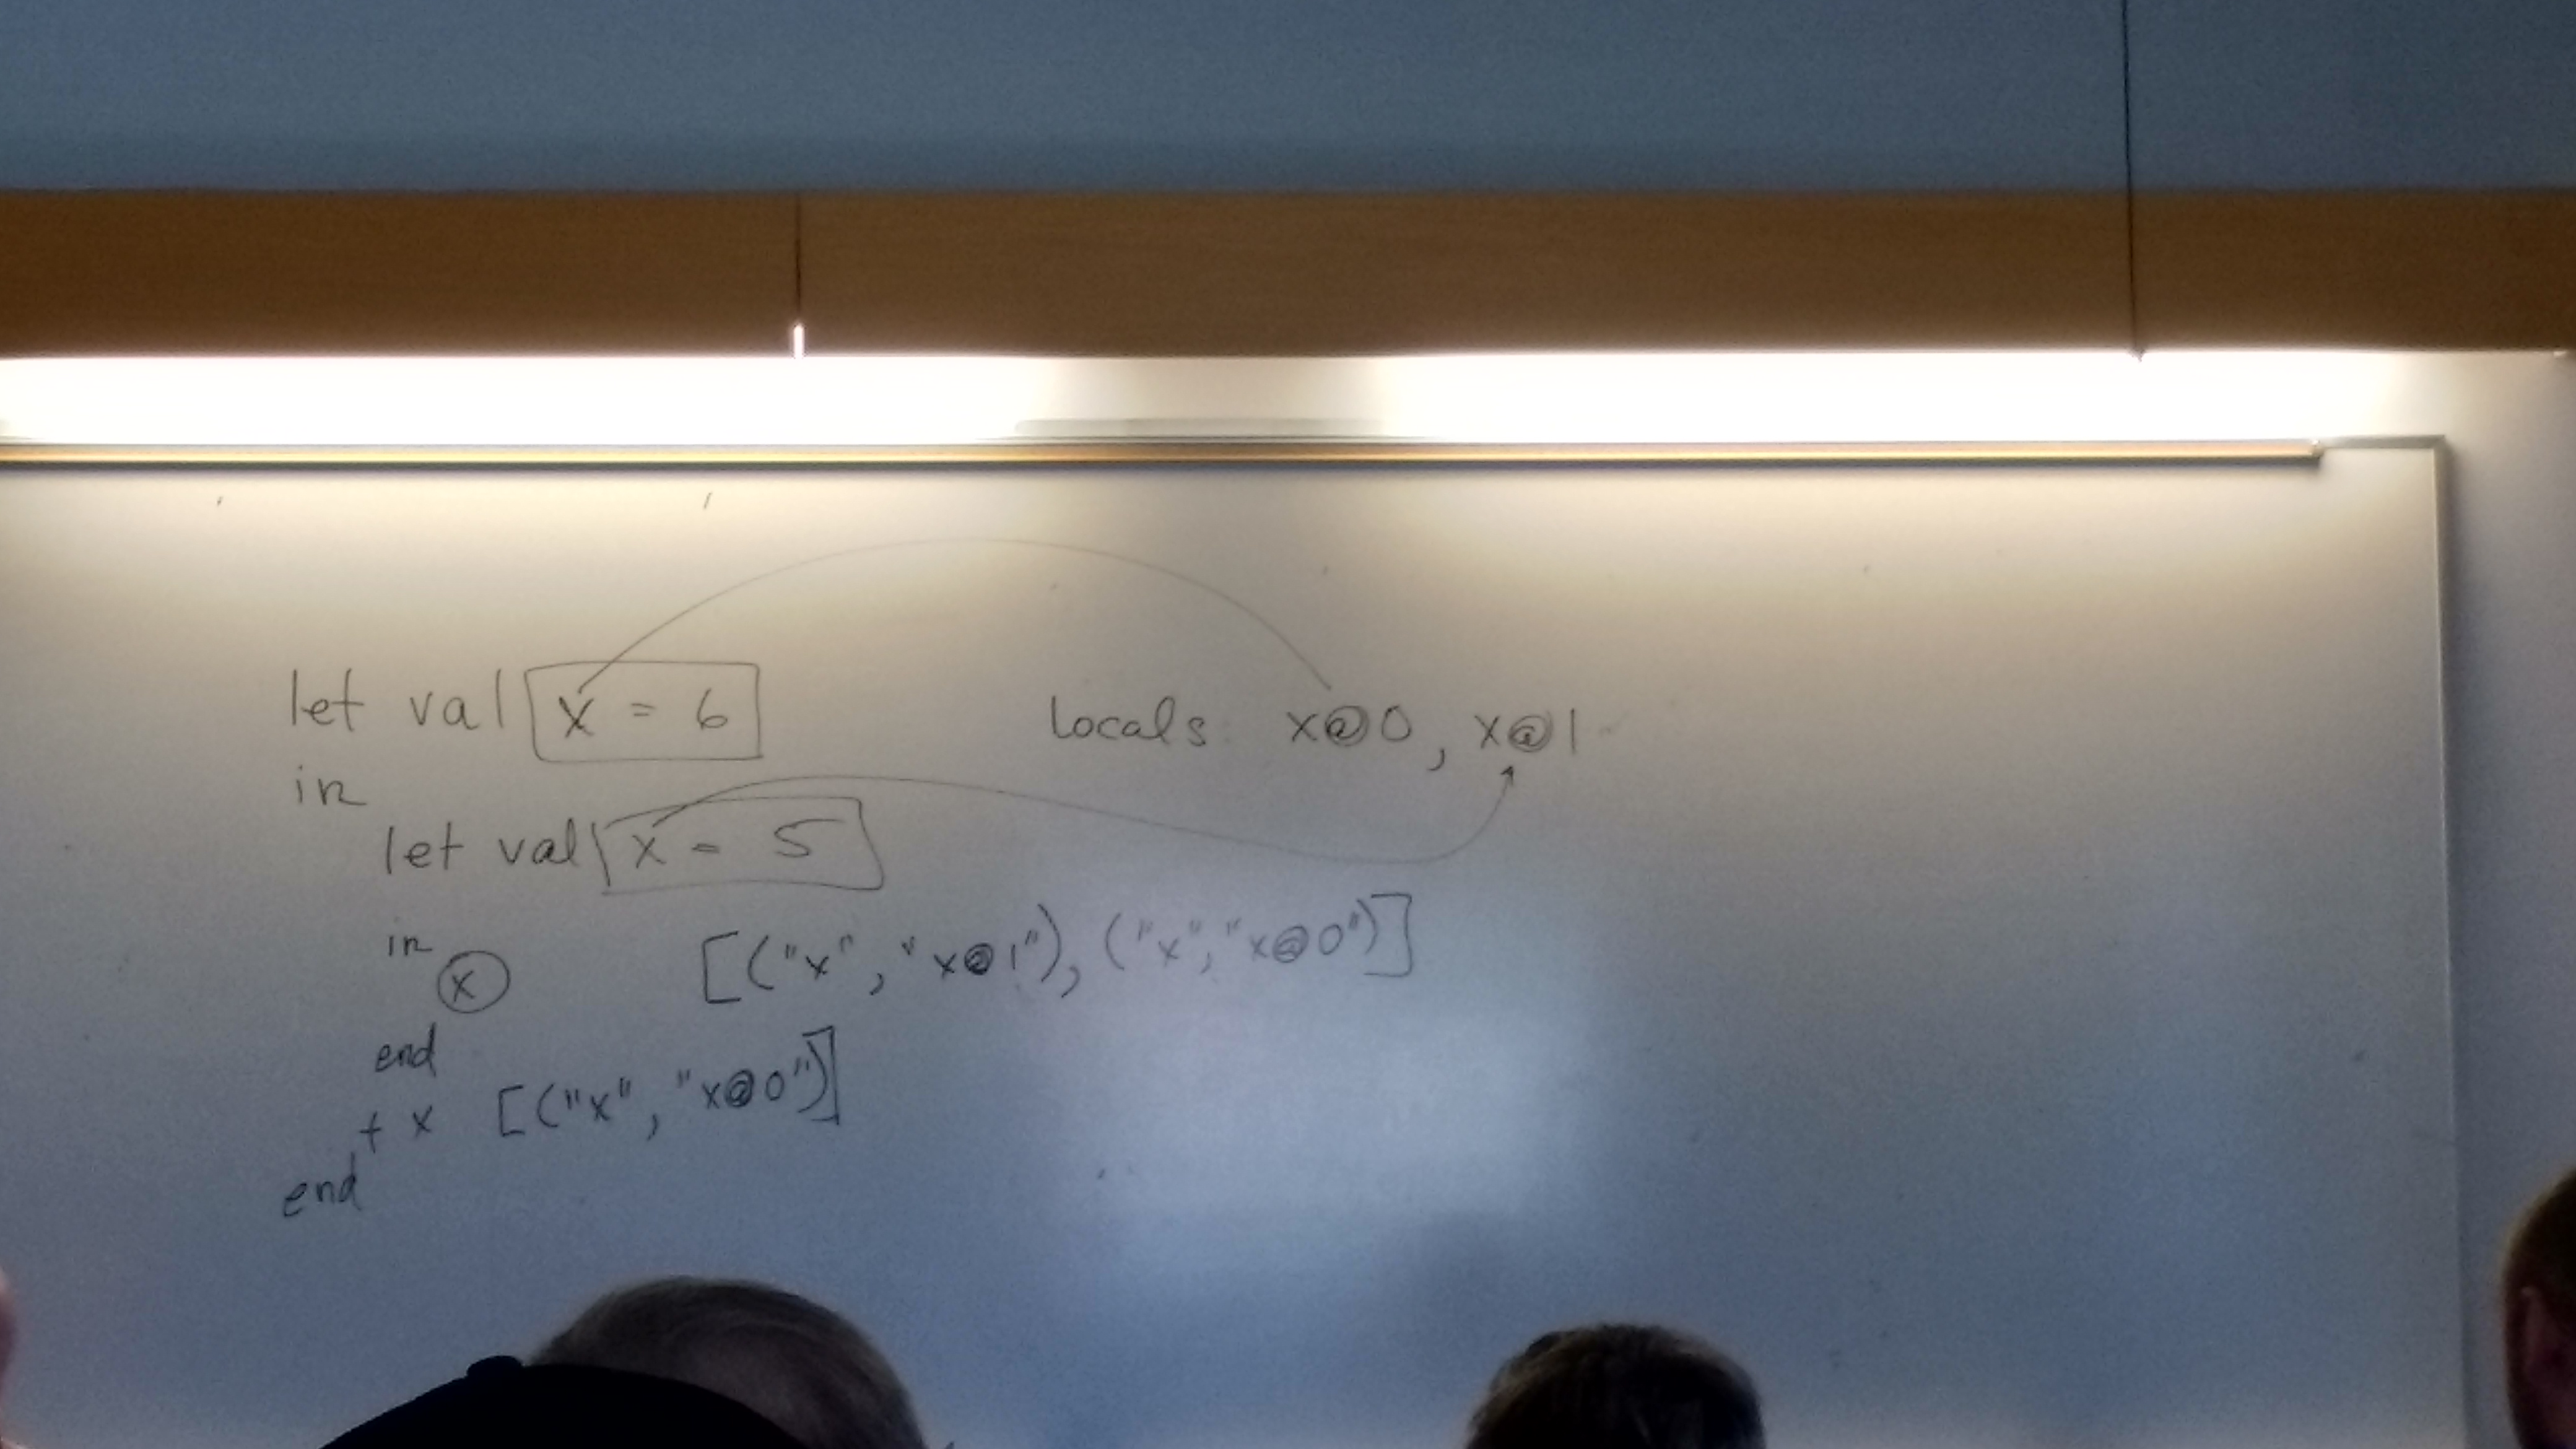 let val x = 6
locals: x@0, x@1
in
let val x = 5
in
x [("x", "x@1"), ("x", "x@0")]
end
+ x [("x", "x@0")]
end